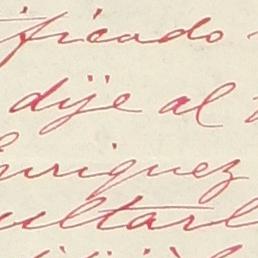 ificado
dije al
Enriquez
ultarl